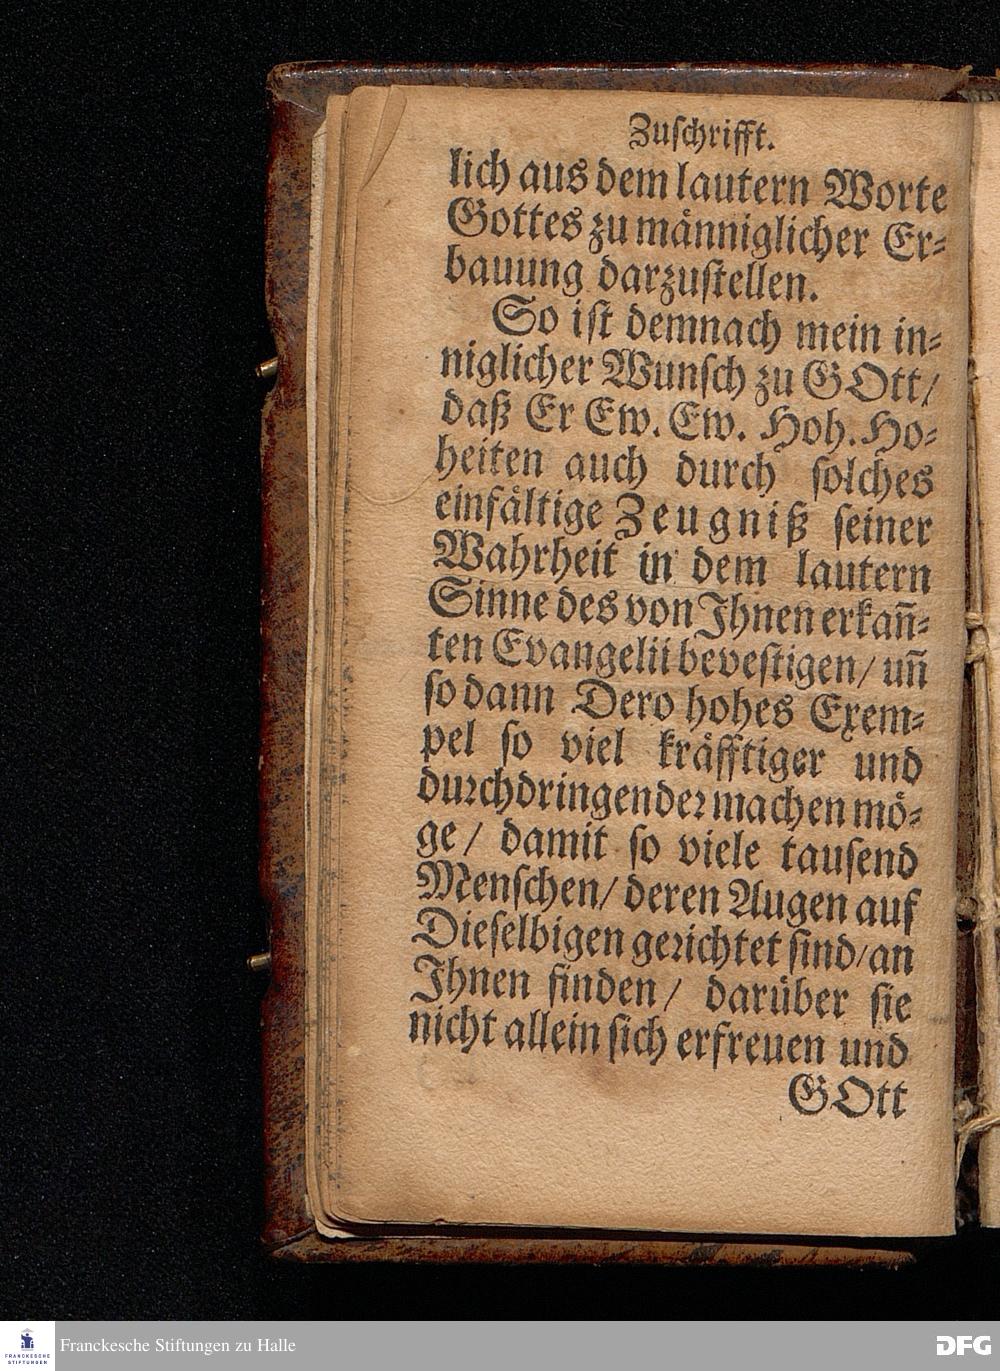 Zuſchrifft.
lich aus dem lautern Worte
Gottes zu maͤnniglicher Er⸗
bauung darzuſtellen.
So iſt demnach mein in⸗
niglicher Wunſch zu GOtt/
daß Er Ew. Ew. Hoh. Ho⸗
heiten auch durch ſolches
einfaͤltige Zeugniß ſeiner
Wahrheit in dem lautern
Sinne des von Ihnen erkañ⸗
ten Evangelii beveſtigen/ uñ
ſo dann Dero hohes Exem⸗
pel ſo viel kraͤfftiger und
duꝛchdringendeꝛ machen moͤ⸗
ge/ damit ſo viele tauſend
Menſchen/ deren Augen auf
Dieſelbigen geꝛichtet ſind/an
Ihnen finden/ daruͤber ſie
nicht allein ſich erfreuen und
GOtt
FRANCKESCHE
STIFTUNGEN
Franckesche Stiftungen zu Halle
DFG